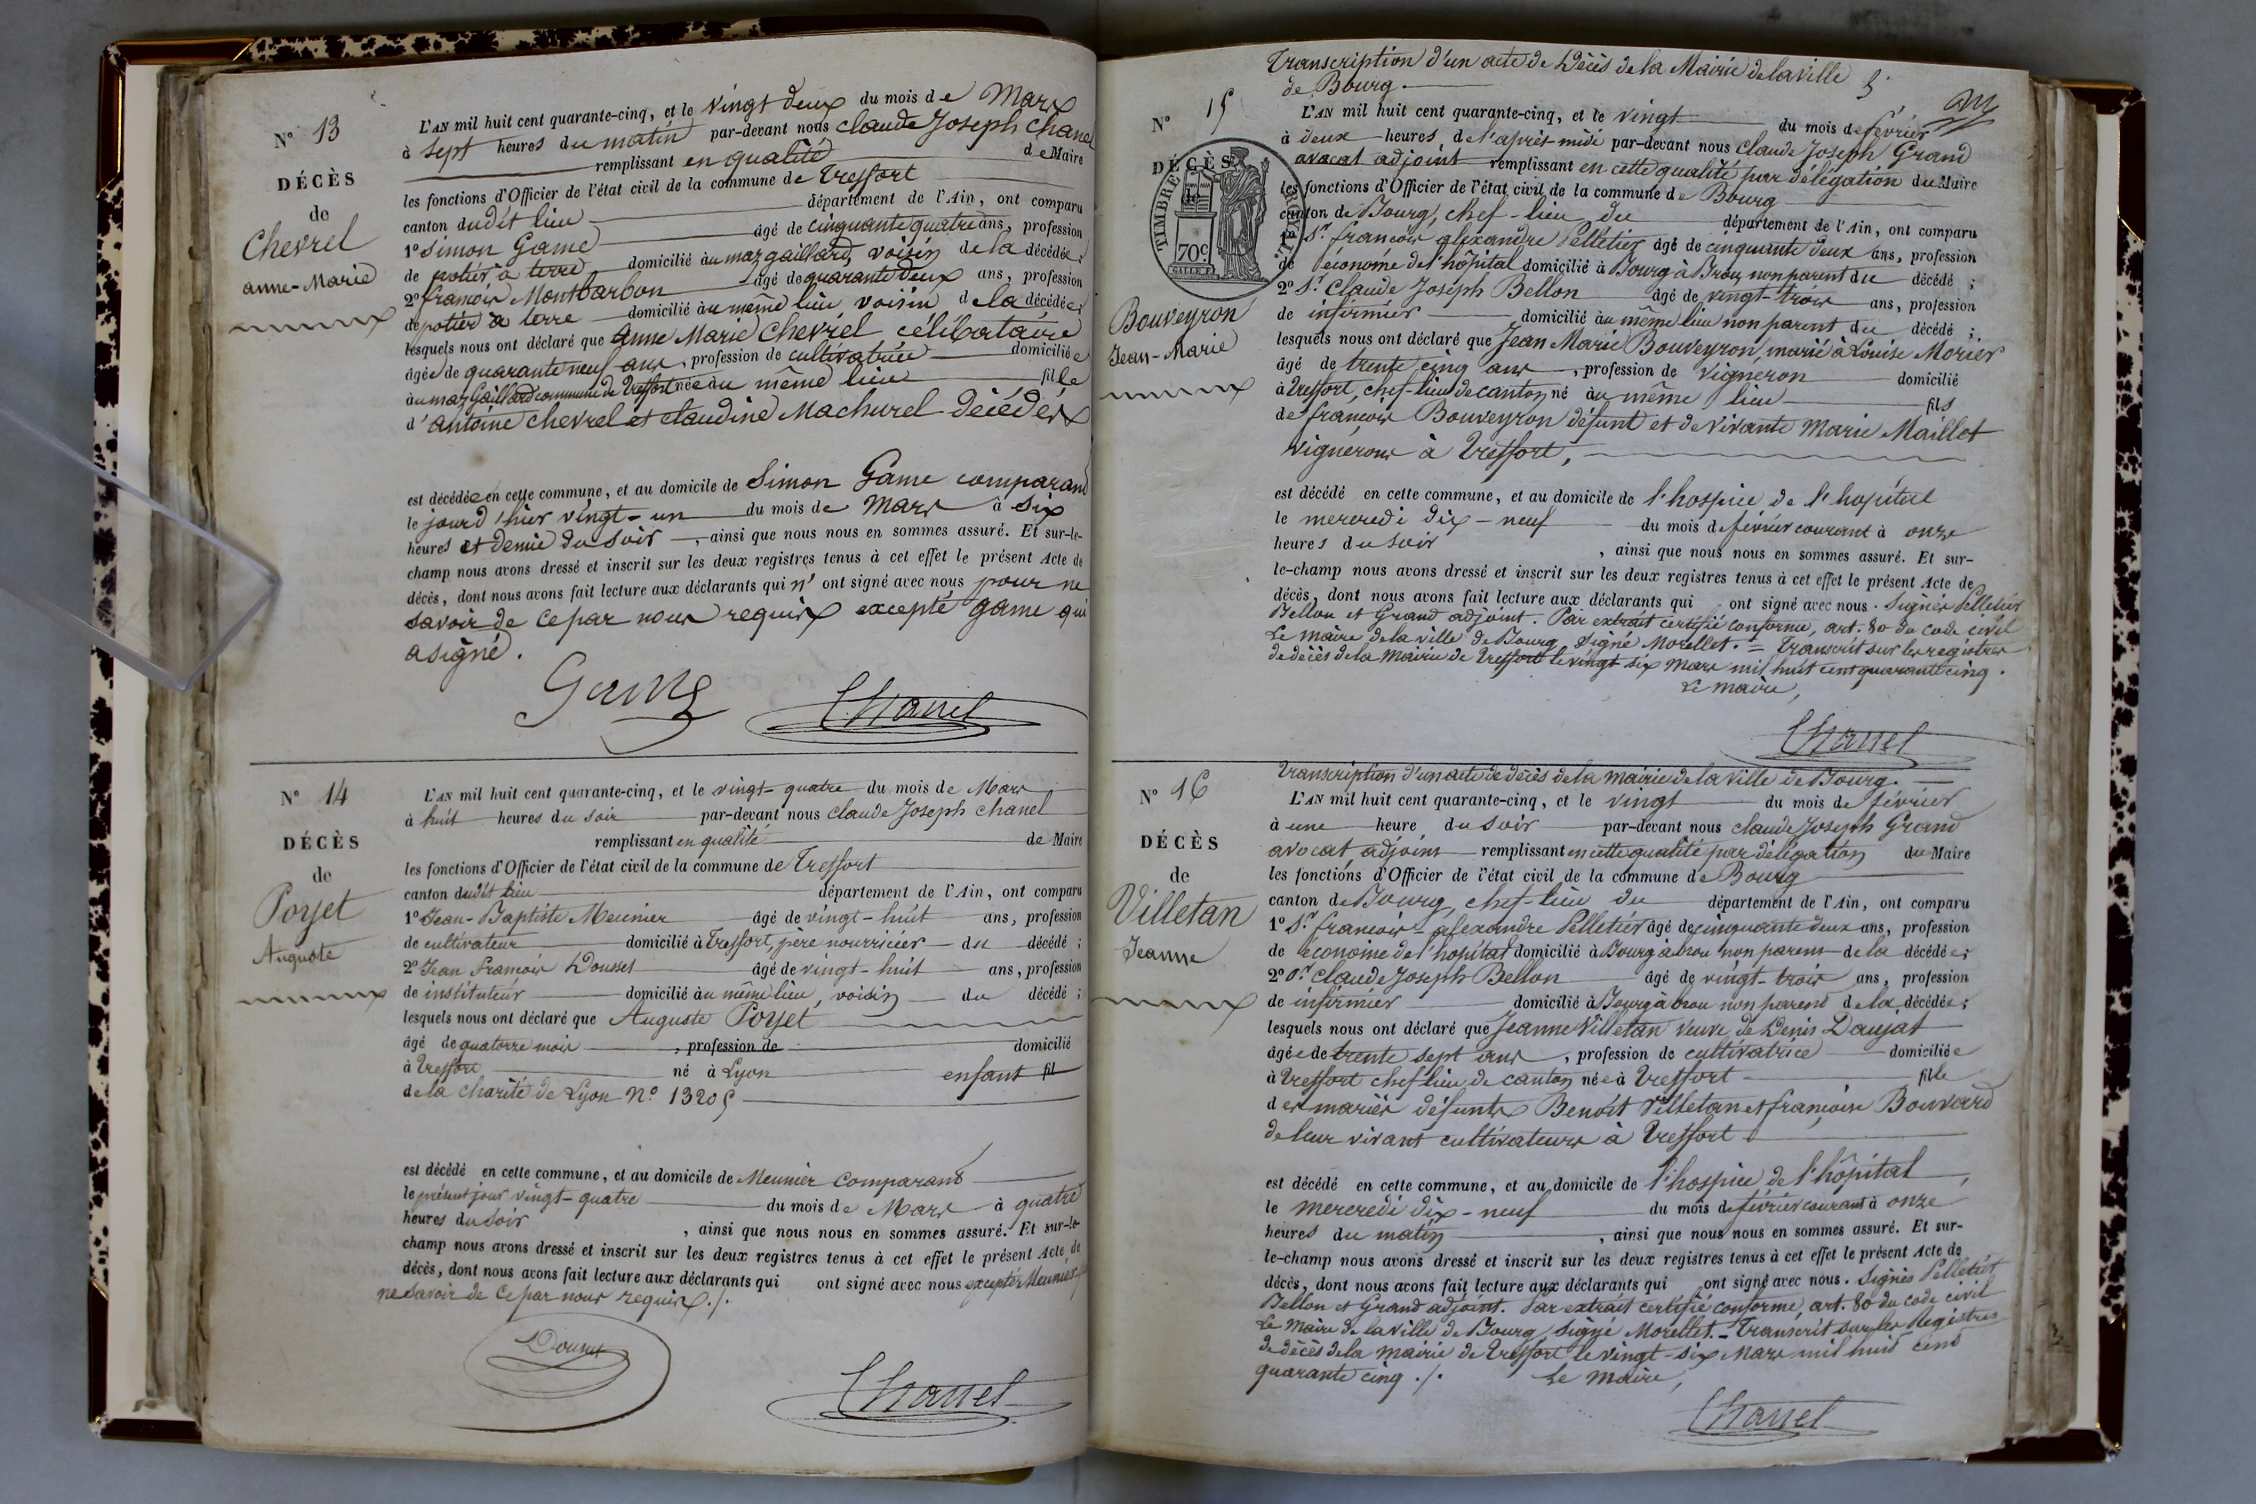 N° 13
DÉCÈS
de
Chevrel
anne-Marie
L'AN mil huit cent quarante-cinq, et le vingt deux du mois de Mars
à sept heures du matin par-devant nous Claude Joseph Chanel
remplissant en qualité de Maire
les fonctions d'Officier de l'état civil de la commune de Treffort
canton dudit lieu département de l'Ain, ont comparu
1° Simon Game âgé de cinquante quatre ans, profession
de potier à terre domicilié au maz gaillard, voisin de la décédée;
2° françois Montbarbon âgé de quarante deux ans, profession
de potier à terre domicilié au même lieu voisin de la décédée;
lesquels nous ont déclaré que Anne Marie Chevrel célibataire
âgée de quarante neuf ans, profession de cultivatrice domiciliée
au maz Gaillard commune de Treffort née au même lieu fille
d'Antoine Chevrel et claudine Machurel décédés
est décédée en cette commune, et au domicile de Simon Game comparant
le jourd'hier vingt-un du mois de Mars à six
heures et demie du soir, ainsi que nous nous en sommes assuré. Et sur-le-
champ nous avons dressé et inscrit sur les deux registres tenus à cet effet le présent Acte de
décès, dont nous avons fait lecture aux déclarants qui n'ont signé avec nous pour ne
savoir de ce par nous requis excepté Game qui
a signé.
Game Chanel
N° 14
DÉCÈS
de
Poyet
Auguste
L'AN mil huit cent quarante-cinq, et le vingt-quatre du mois de Mars
à huit heures du soir par-devant nous Claude Joseph Chanel
remplissant en qualité de Maire
les fonctions d'Officier de l'état civil de la commune de Treffort
canton dudit lieu département de l'Ain, ont comparu
1° Jean-Baptiste Meunier âgé de vingt-huit ans, profession
de cultivateur domicilié à Treffort, père nourricier du décédé;
2° Jean françois Dousset âgé de vingt-huit ans, profession
de instituteur domicilié au même lieu, voisin du décédé;
lesquels nous ont déclaré que Auguste Poyet
âgé de quatorze mois, profession de domicilié
à Treffort né à Lyon enfant fil
de la charité de Lyon N° 13205
est décédé en cette commune, et au domicile de Meunier comparant
le présent jour vingt-quatre du mois de Mars à quatre
heures du soir, ainsi que nous nous en sommes assuré. Et sur-le-
champ nous avons dressé et inscrit sur les deux registres tenus à cet effet le présent Acte de
décès, dont nous avons fait lecture aux déclarants qui ont signé avec nous excepté Meunier
ne savoir de ce par nous requis./.
Chanel
Transcription d'un acte de Décès de la Mairie de la ville
de Bourg.
N° 15
DÉCÈS
TIMBRE ROYAL
70c
Bouveyron
Jean-Marie
L'AN mil huit cent quarante-cinq, et le vingt du mois de février
à deux heures de l'après midi par-devant nous Claude Joseph Grand
avocat adjoint remplissant en cette qualité par délégation du Maire
les fonctions d'Officier de l'état civil de la commune de Bourg
canton de Bourg, chef-lieu du département de l'Ain, ont comparu
1° Sr. françois alexandre Pelletier âgé de cinquante deux ans, profession
de économe de l'hôpital domicilié à Bourg à Brou, non parent du décédé;
2° Sr. Claude Joseph Bellon âgé de vingt-trois ans, profession
de infirmier domicilié au même lieu non parent du décédé;
lesquels nous ont déclaré que Jean Marie Bouveyron, marié à Louise Morier
âgé de trente cinq ans, profession de vigneron domicilié
à Treffort, chef-lieu de canton né au même lieu fils
de françois Bouveyron défunt et de vivante Marie Maillet
vignerons à Treffort,
est décédé en cette commune, et au domicile de l'hospice de l'hopital
le mercredi dix-neuf du mois de février courant à onze
heures du soir, ainsi que nous nous en sommes assuré. Et sur-
le-champ nous avons dressé et inscrit sur les deux registres tenus à cet effet le présent Acte de
décès, dont nous avons fait lecture aux déclarants qui ont signé avec nous. Signés Pelletier
Bellon et Grand adjoint. Par extrait certifié conforme, art. 80 du code civil
Le maire de la ville de Bourg, signé Morellet. = Transcrit sur les registres
de décès de la Mairie de Treffort le vingt six Mars mil huit cent quarante cinq.
Le maire,
Chanel
Transcription d'un acte de décès de la mairie de la ville de Bourg.
N° 16
DÉCÈS
de
Villetan
Jeanne
L'AN mil huit cent quarante-cinq, et le vingt du mois de février
à une heure du soir par-devant nous Claude Joseph Grand
avocat, adjoint remplissant en cette qualité par délégation du Maire
les fonctions d'Officier de l'état civil de la commune de Bourg
canton de Bourg, chef-lieu du département de l'Ain, ont comparu
1° Sr. françois-alexandre Pelletier âgé de cinquante deux ans, profession
de économe de l'hopital domicilié à Bourg à brou non parent de la décédée;
2° Sr. Claude Joseph Bellon âgé de vingt-trois ans, profession
de infirmier domicilié à Bourg à brou non parent de la décédée;
lesquels nous ont déclaré que Jeanne Villetan veuve de Denis Daujat
âgée de trente sept ans, profession de cultivatrice domiciliée
à Treffort chef lieu de canton née à Treffort fille
des mariés défunts Benoît Villetan et françoise Bouvard
de leur vivant cultivateurs à Treffort
est décédé en cette commune, et au domicile de l'hospice de l'hôpital,
le mercredi dix-neuf du mois de février courant à onze
heures du matin, ainsi que nous nous en sommes assuré. Et sur-
le-champ nous avons dressé et inscrit sur les deux registres tenus à cet effet le présent Acte de
décès, dont nous avons fait lecture aux déclarants qui ont signé avec nous. Signés Pelletier
Bellon et Grand adjoint. Par extrait certifié conforme, art. 80 du code civil
Le Maire de la ville de Bourg, signé Morellet. - Transcrit sur les Registres
de décès de la mairie de Treffort le vingt-six Mars mil huit cent
quarante cinq ./. Le Maire,
Chanel